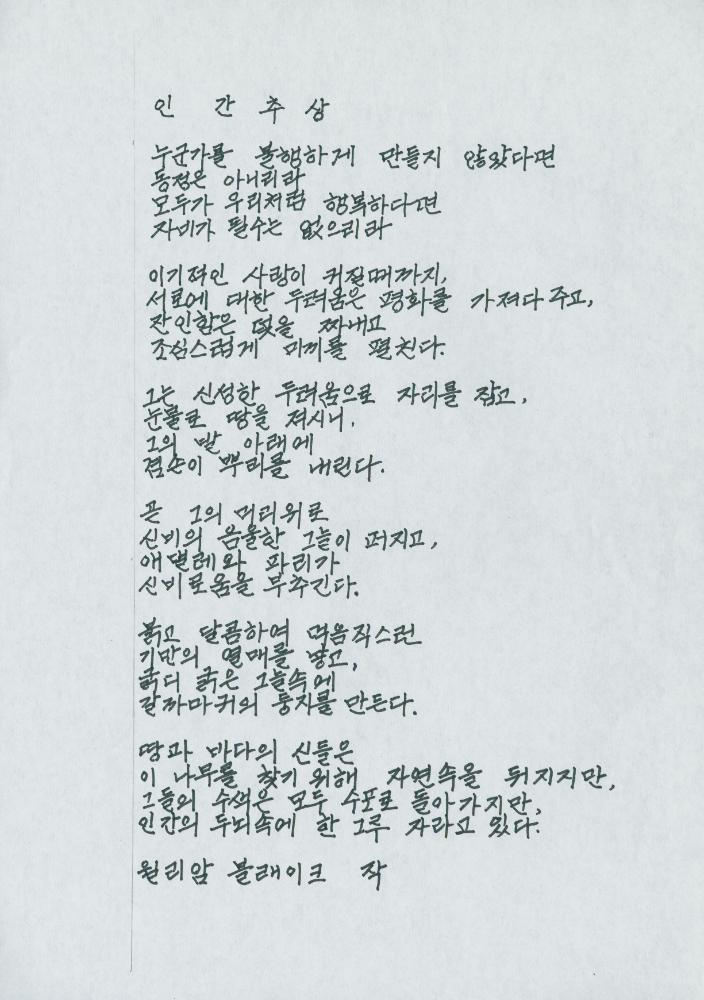 인 간 추 상
누군가를 불행하게 만들지 않았다면
동정은 아니리라
모두가 우리처럼 행복하다면
자비가 필수는 없으리라
이기적인 사랑이 커질때까지,
서로에 대한 두려움은 평화를 가져다 주고,
잔인함은 덫을 짜내고
조심스럽게 미끼를 펼친다.
그는 신성한 두려움으로 자리를 잡고,
눈물로 땅을 적시니,
그의 발 아래에
겸손이 뿌리를 내린다.
곧 그의 머리위로
신비의 음울한 그늘이 퍼지고,
애벌레와 파리가
신비로움을 부추긴다.
붉고 달콤하여 먹음직스런
기만의 열매를 맺고,
굵디 굵은 그늘속에
갈까마귀의 둥지를 만든다.
땅과 바다의 신들은
이 나무를 찾기 위해 자연속을 뒤지지만,
그들의 수색은 모두 수포로 돌아가지만,
인간의 두뇌속에 한 그루 자라고 있다.
윌리암 블레이크 작